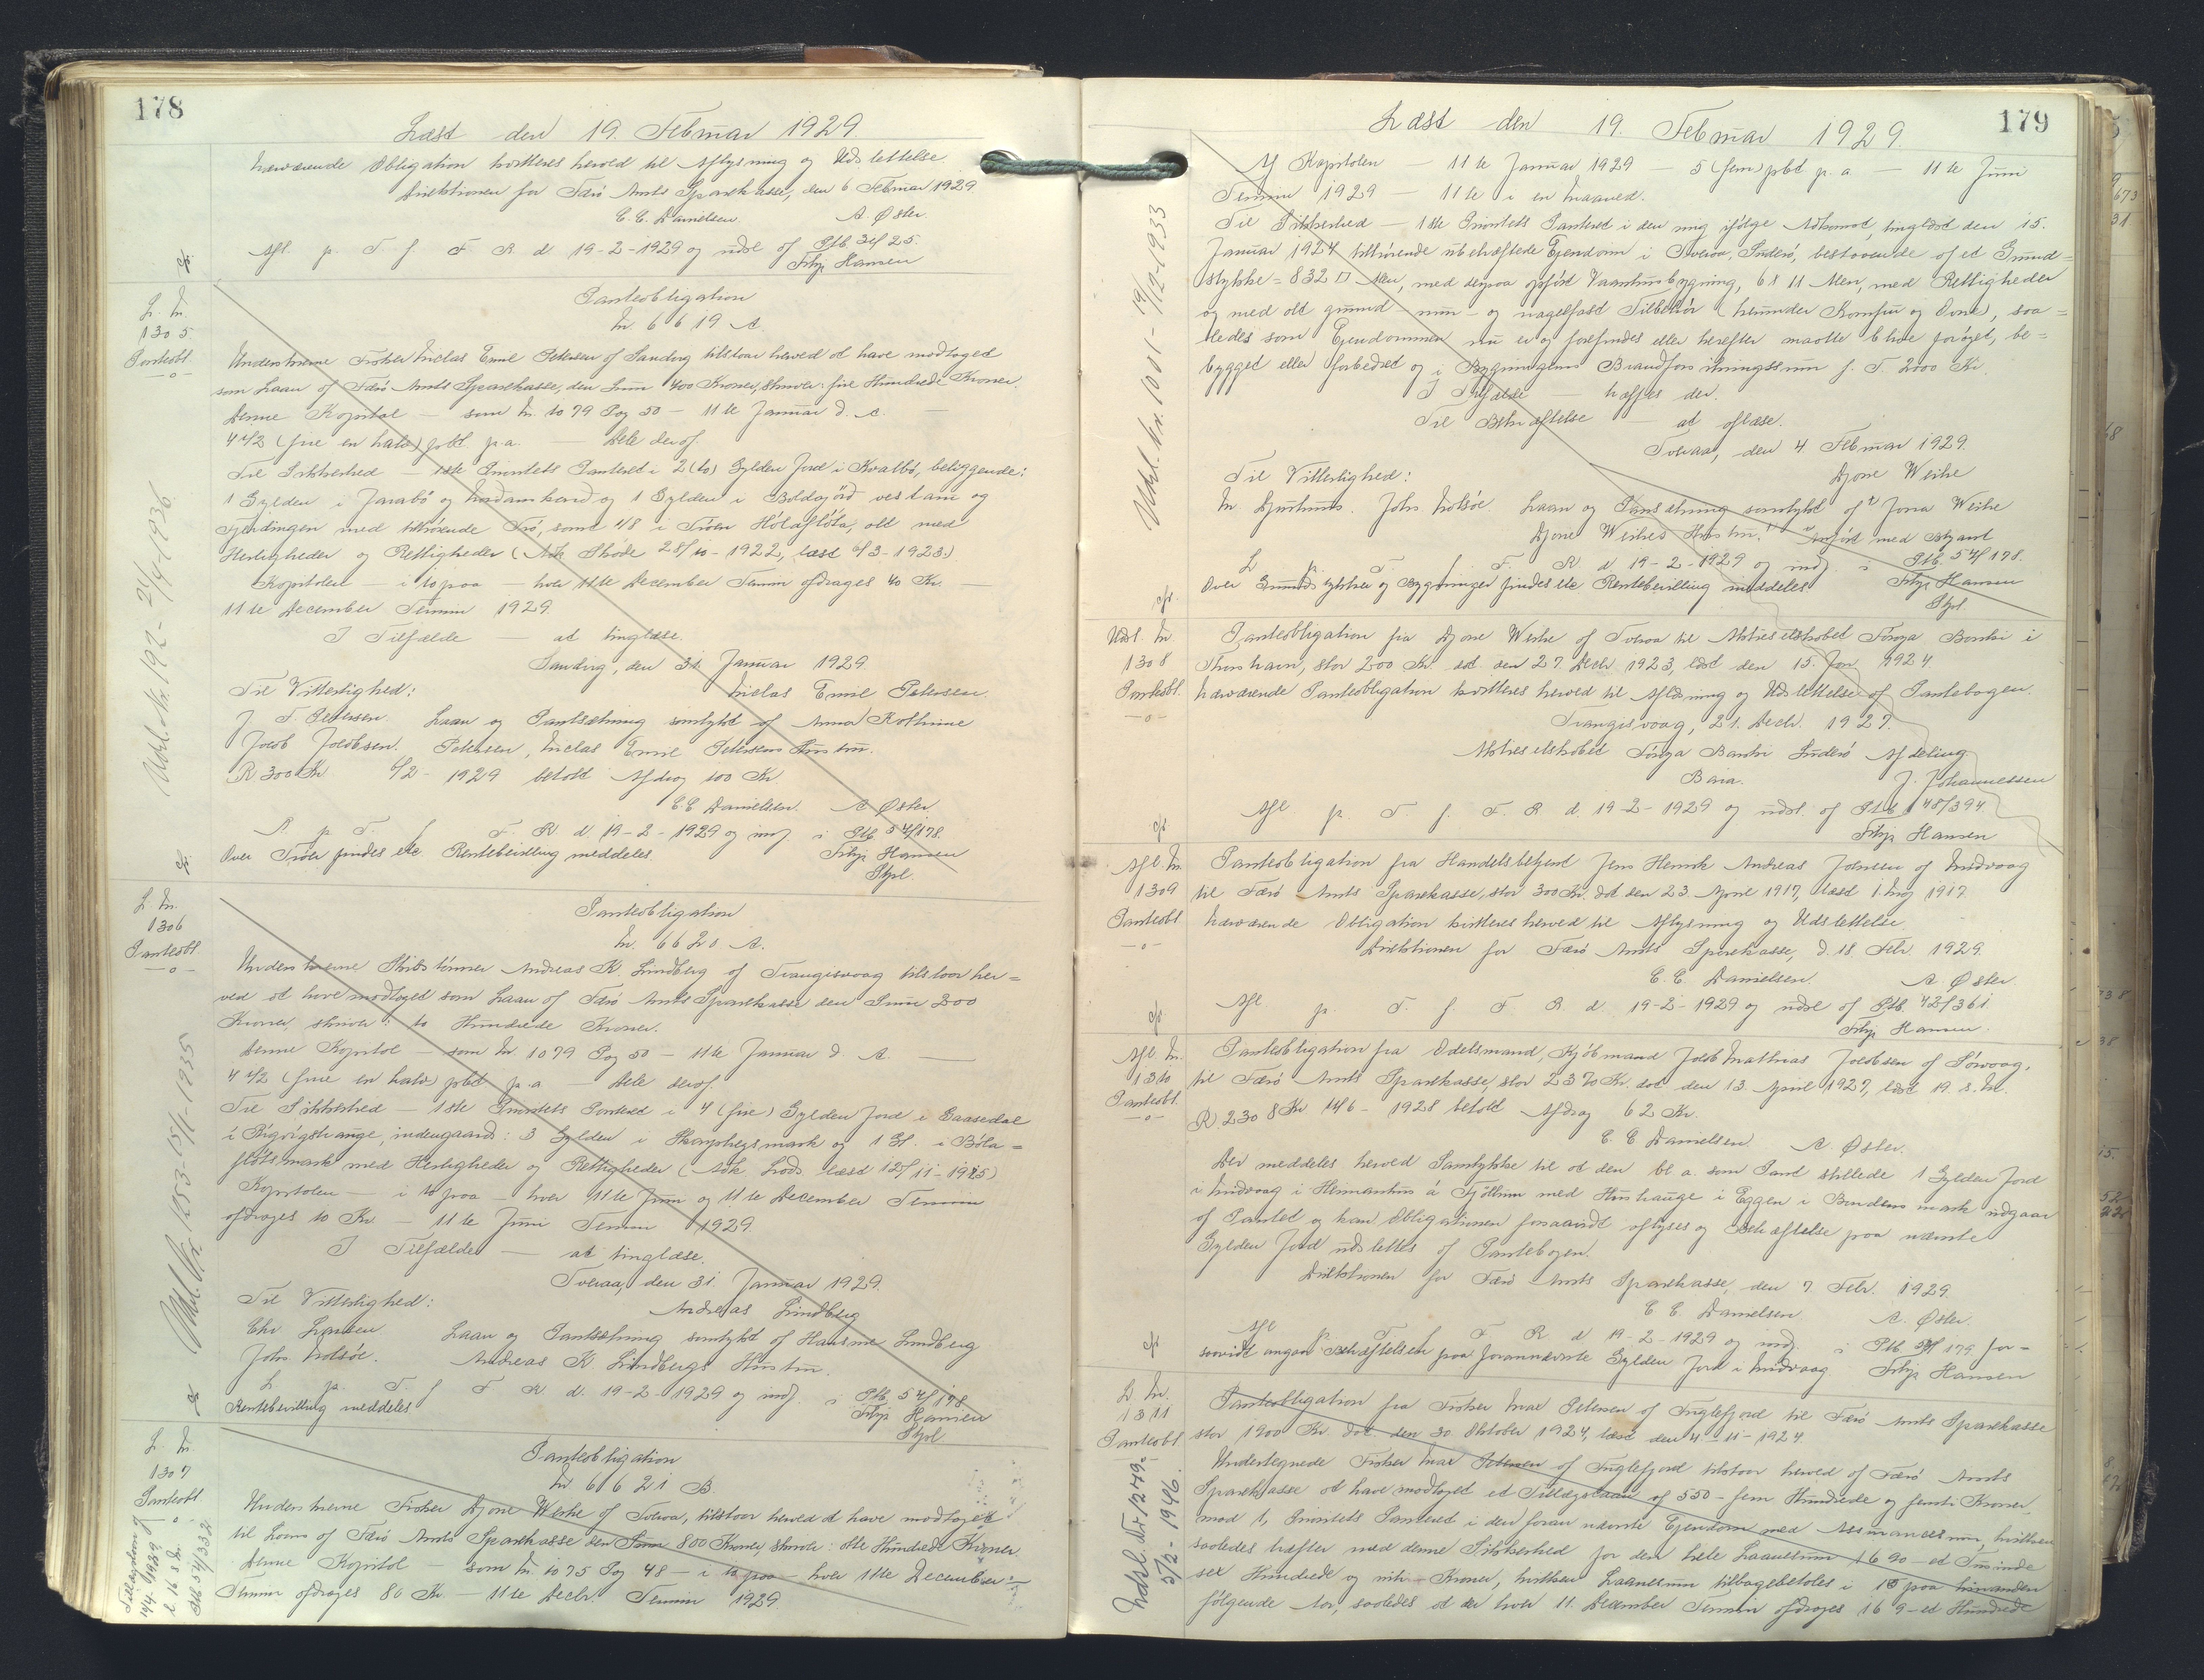 178
Læst den 19. Februar 1929.
Nærværende Obligation kvitteres herved til Aflysning og Udslettelse
Direktionen for Færø Amts Sparekasse, den 6 Februar 1929
C. C. Danielsen. A. Øster.
Afl. p. T. f. F. R. d. 19-2-1929 og udsl. af Ptb. 34/25.
Filip Hansen
L. Nr.
1305
Panteobl.
Panteobligation
Nr. 6619 A.
Underskrevne Fisker Niclas Emil Petersen af Sandvig tilstaar herved at have modtaget
som Laan af Færø Amts Sparekasse, den Sum 400 Kroner, skriver: fire Hundrede Kroner.
Denne Kapital — som Nr. 1079 Pag 50 — 11te Januar d. A. —
4 1/2 (fire en halv) pCt. p.a. — Dele deraf.
Til Sikkerhed — 1ste Prioritets Panteret i 2 (to) Gylden Jord i Kvalbø, beliggende:
1 Gylden i Jarabø og Nordanherd og 1 Gylden i Boldagørd vestani og
Gjerdingen med tilhørende Trø, samt 1/8 i Trøen Hólaflöta, alt med
Herligheder og Rettigheder (Adk. Skøde 28/10-1922, læst 6/3-1923)
Kapitalen — i 10 paa — hver 11te December Termin afdrages 40 Kr. —
11te December Termin 1929
I Tilfælde — at tinglæse.
Sandvig, den 31 Januar 1929.
Til Vitterlighed: Niclas Emil Petersen.
J. F. Petersen. Laan og Pantsætning samtykt af Anna Kathrine
Jacob Jacobsen. Petersen, Niclas Emil Petersens Hustru.
R. 300 Kr 6/2-1929 betalt Afdrag 100 Kr
C C Danielsen. A Øster.
L. p. T. f. F. R. d 19-2-1929 og indf. i Ptb. 54/178.
Over Trøer findes ikke Rentebevilling meddeles. Filip Hansen
Stpl.
Udsl. Nr. 192 - 21/4-1936
L. Nr.
1306
Panteobl.
Panteobligation
Nr. 6620 A.
Underskrevne Skibstømrer Andreas K. Lindberg af Trangisvaag tilstaar her=
ved at have modtaget som Laan af Færø Amts Sparekasse den Sum 200
Kroner, skriver: to Hundrede Kroner.
Denne Kapital — som Nr. 1079 Pag 50 — 11te Januar d. A. —
4 1/2 (fire en halv) pCt p.a — Dele deraf.
Til Sikkerhed — 1ste Prioritets Panteret i 4 (fire) Gylden Jord i Gaasedal
indengaards: 3 Gylden i Skarpheysmark og 1 Gl. i Bóla=
flötsmark med Herligheder og Rettigheder (Adk. Lods. læst 12/11-1925)
Kapitalen — i 10 paa — hver 11te Juni og 11te December Termin
afdrages 10 Kr. — 11te Juni Termin 1929.
I Tilfælde — at tinglæse.
Tveraa, den 31. Januar 1929.
Til Vitterlighed: Andreas Lindberg
Chr Larsen Laan og Pantsætning samtykt af Hansine Lindberg
Johs. Nolsøe. Andreas K. Lindbergs Hustru.
L p. T. f F R d. 19-2-1929 og indf. i Ptb. 54/178
Rentebevilling meddeles Filip Hansen
Stpl.
Udsl. Nr. 1253 - 15/1-1935
L. Nr.
1307
Panteobl.
Panteobligation
Nr 6621 B.
Underskrevne Fisker Djone Weihe af Tveraa, tilstaar herved at have modtaget
til Laans af Færø Amts Sparekasse den Sum 800 Kroner, skriver: otte Hundrede Kroner.
Denne Kapital — som Nr. 1075 Pag 48 — i 10 paa — hver 11te December
Termin afdrages 80 Kr. — 11te Decbr. Termin 1929.
179
Læst den 19. Februar 1929.
Af Kapitalen 11te Januar 1929 — 5 (fem) pCt p. a. — 11te Juni
Termin 1929 11te i en Maaned.
Til Sikkerhed — 1ste Prioritets Panteret i den mig ifølge Adkomst, tinglæst den 15.
Januar 1924 tilhørende ubehæftede Ejendom i Tveraa, Suderø, bestaaende af et Grund=
stykke = 832 □ Alen, med derpaa opført Vaaningsbygning, 6 x 11 Alen, med Rettigheder
og med alt grund- mur- og nagelfast Tilbehør (herunder Komfur og Ovne), saa=
ledes som Ejendommen nu er og forefindes eller herefter maatte blive forøget, be=
bygget eller forbedret og i Bygningens Brandforsikringssum f. T. 2000 Kr.
I Tilfælde — hæftes der.
Til Bekræftelse — at aflæse.
Tveraa, den 4 Februar 1929.
Til Vitterlighed: Djone Weihe
M Djurhuus. Johs. Nolsøe. Laan og Pansætning samtykt af Jona Weihe
Djone Weihes Hustru. Anført med Blyant
L p. T. f. F. R d 19-2-1929 og indf. i Ptb. 54/178.
Over Grundstykker og Bygninger findes ikke Rentebevilling meddeles Filip Hansen
Stpl.
Udsl. Nr. 1001 - 19/12-1933
Udsl. Nr
1308
Panteobl.
Panteobligation fra Djone Weihe af Tveraa til Aktieselskabet Føroya Banki i
Thorshavn, stor 200 Kr. dat. den 27. Decbr 1923, læst den 15. Jan 1924.
Nærværende Panteobligation kvitteres herved til Aflæsning og Udslettelse af Pantebogen.
Trangisvaag, 21. Decbr. 1927.
Aktieselskabet Føroya Banki Suderø Afdeling
J. Johannessen
Afl p. T. f. F. R. d. 19-2-1929 og udsl. af Ptb. 48/394
Filip Hansen
Afl. Nr.
1309
Panteobl
Panteobligation fra Handelsbetjent Jens Henrik Andreas Joensen af Midvaag
til Færø Amts Sparekasse, stor 300 Kr. dat den 23 April 1917, læst 1. Maj 1917.
Nærværende Obligation kvitteres herved til Aflysning og Udslettelse
Direktionen for Færø Amts Sparekasse, d. 18. Febr. 1929.
C. C Danielsen. A. Øster.
Afl p. T. f. F. R. d 19-2-1929 og udsl af Ptb. 42/361
Filip Hansen.
Afl Nr.
1310
Panteobl.
Panteobligation fra Odelsmand, Kjöbmand Jacob Mathias Jacobsen af Sørvaag,
til Færø Amts Sparekasse, stor 2370 Kr. dat. den 13 April 1927, læst 19. s. M.
R. 2308 Kr 14/6-1928 betalt Afdrag 62 Kr.
C. C Danielsen A. Øster.
Der meddeles herved Samtykke til at den bl. a. som Pant stillede 1 Gylden Jord
i Midvaag i Heimanhus á Fjøllum med Hushauge i Eggen i Bundens mark udgaar
af Pantet og kan Obligationen forsaavidt aflyses og Behæftelse paa nævnte
Gylden Jord udslettes af Pantebogen.
Direktionen for Færø Amts Sparekasse, den 7. Febr. 1929.
C C Danielsen A. Øster.
Afl p. T. f. F. R d 19-2-1929 og indf. i Ptb. 54/179 for=
saavidt angaar Behæftelsen paa forannævnte Gylden Jord i Midvaag. Filip Hansen
L Nr.
1311
Panteobl.
Panteobligation fra Fisker Petersen af Fuglefjord til Færø Amts Sparekasse
stor 1200 Kr. dat. den 30 Oktober 1924, læst den 4-11-1924.
Undertegnede Fisker Petersen af Fuglefjord tilstaar herved af Færø Amts
Sparekasse at have modtaget et Tillægslaan af 550 - fem Hundrede og femti Kroner
mod 1. Prioritets Panteret i den foran nævnte Ejendom med Assurancesum, hvilken
saaledes hæfter med denne Sikkerhed for den hele Laanesum 1690 - et Tusinde
sex Hundrede og niti - Kroner, hvilken Laanesum tilbagebetales i 10 paa hinanden
følgende Aar, saaledes at der hver 11. December Termin afdrages 169 - et Hundrede
Udsl. Nr. 1249 -
5/2-1946.